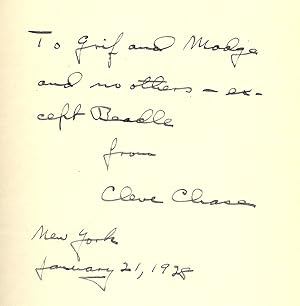 To Grif and Madge
and no others – ex-
cept Beadle
from
Cleve Chase
New York
January 21, 1928